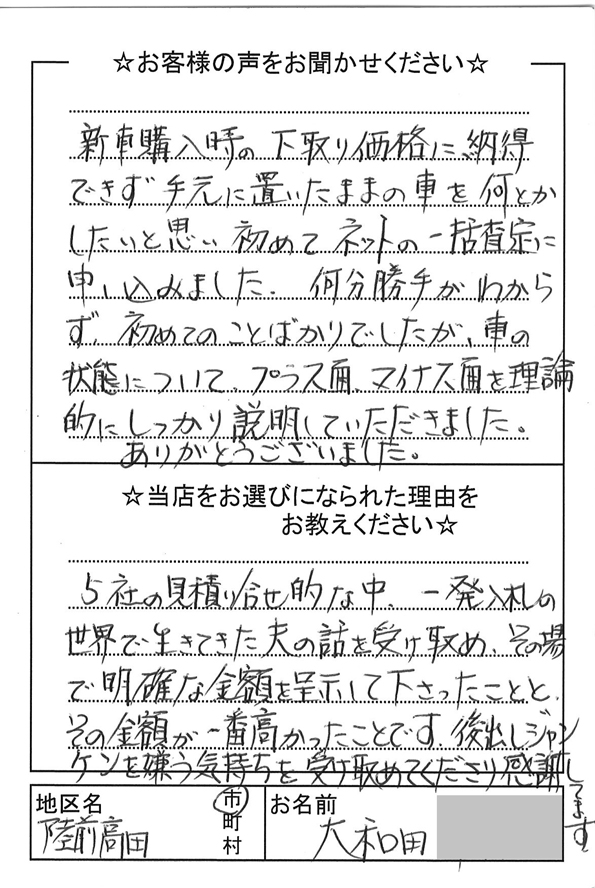 ☆お客様の声をお聞かせください☆
新車購入時の下取り価格に、納得
できず手元に置いたままの車を何とか
したいと思い初めてネットの一括査定に
申し込みました。何分勝手がわから
ず、初めてのことばかりでしたが、車の
状態について、プラス面、マイナス面を理論
的にしっかり説明していただきました。
ありがとうございました。
☆当店をお選びになられた理由を
お教えください☆
5社の見積り合せ的な中、一発入札の
世界で生きてきた夫の話を受け取め、その場
で明確な金額を呈示して下さったことと、
その金額が一番高かったことです。後出しジャン
ケンを嫌う気持ちを受け取めてくださり感謝してます
地区名
市
町
村
陸前高田
お名前
大和田